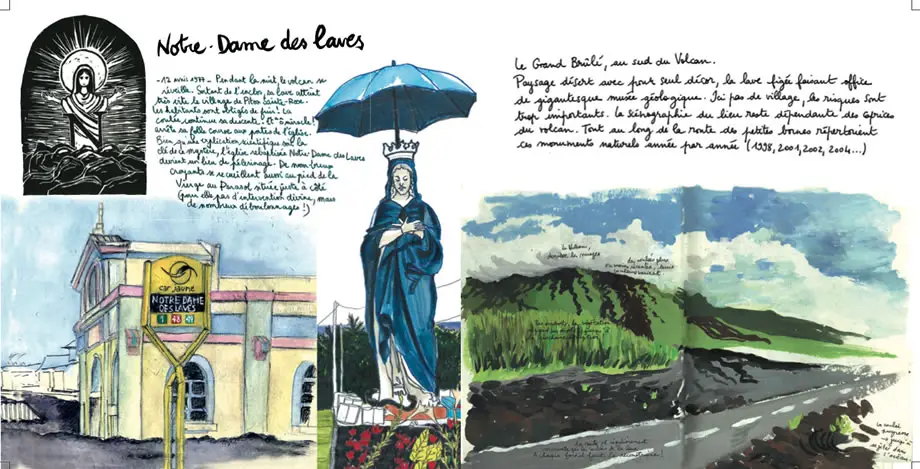 Notre-Dame des laves
- 12 avril 1977 - Pendant la nuit, le volcan se
réveille. Sortant de l'enclos, sa lave atteint
très vite le village de Piton Sainte-Rose.
Les habitants sont obligés de fuir. La
coulée continue sa descente. Et ô miracle !
arrête sa folle course aux portes de l'église.
Bien qu'une explication scientifique soit la
clé de ce mystère, l'église rebaptisée Notre Dame des Laves
devient un lieu de pèlerinage. De nombreux
croyants se recueillent aussi au pied de la
Vierge au Parasol située juste à côté
(pour elle pas d'intervention divine, mais
de nombreux déboulonnages !)
Le Grand Brûlé, au sud du Volcan.
Paysage désert avec pour seul décor, la lave figée faisant office
de gigantesque musée géologique. Ici pas de village, les risques sont
trop importants. La scénographie du lieu reste dépendante des caprices
du volcan. Tout au long de la route des petites bornes répertorient
ces monuments naturels année par année (1998, 2001, 2002, 2004...)
car jaune
NOTRE DAME
DES LAVES
le Volcan,
derrière les nuages